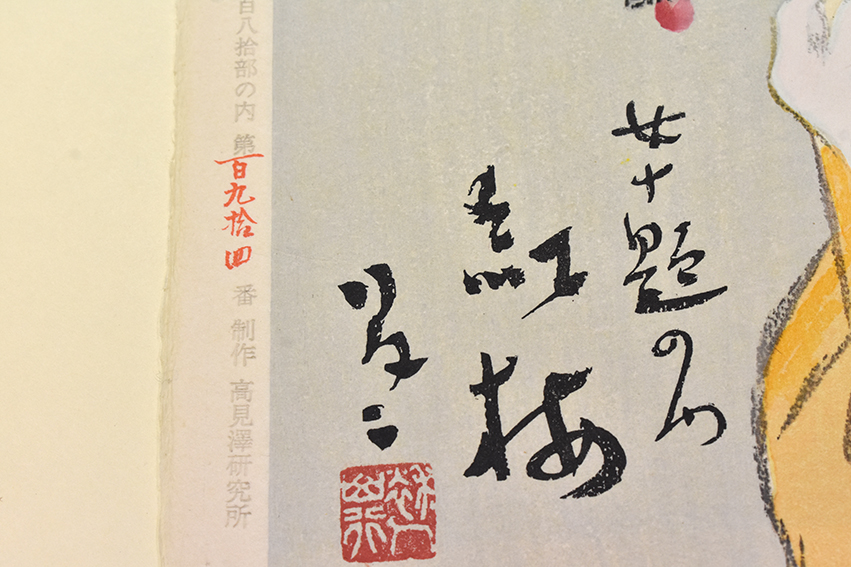 廿十題の内
紅梅
百八拾部の内 第百九拾四番 制作 高見澤研究所